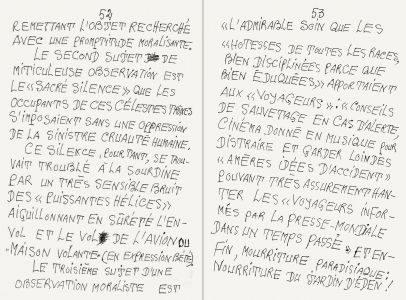 52
REMETTANT L'OBJET RECHERCHÉ
AVEC UNE PROMPTITUDE MORALISANTE.
LE SECOND SUJET DE
MÉTICULEUSE OBSERVATION EST
LE «SACRÉ SILENCE» QUE LES
OCCUPANTS DE CES CÉLESTES TRAINS
S'IMPOSAIENT SANS UNE OPPRESSION
DE LA SINISTRE CRUAUTÉ HUMAINE.
CE SILENCE, POURTANT, SE TROU-
VAIT TROUBLÉ A LA SOURDINE
PAR UN TRÈS SENSIBLE BRUIT
DES «PUISSANTES HÉLICES,»
AIGUILLONNANT EN SÛRETÉ L'EN-
VOL ET LE VOL DE L'AVION OU
"MAISON VOLANTE" (EN EXPRESSION BÉTÉ)
LE TROISIÈME SUJET D'UNE
OBSERVATION MORALISTE EST
53
«L'ADMIRABLE SOIN QUE LES
«HOTESSES DE TOUTES LES RACES,
BIEN DISCIPLINÉES PARCE QUE
BIEN ÉDUQUÉES,» APPORTAIENT
AUX «VOYAGEURS»: «CONSEILS
DE SAUVETAGE EN CAS D'ALERTE,
CINÉMA DONNÉ EN MUSIQUE POUR
DISTRAIRE ET GARDER LOIN DES
«AMÈRES IDÉES D'ACCIDENT»
POUVANT TRÈS ASSUREMENT HAN-
TER LES «VOYAGEURS INFOR-
MÉS PAR LA PRESSE-MONDIALE
DANS UN TEMPS PASSÉ» ET EN-
FIN, MOURRITURE PARADISIAQUE:
NOURRITURE DU JARDIN D'ÉDEN!